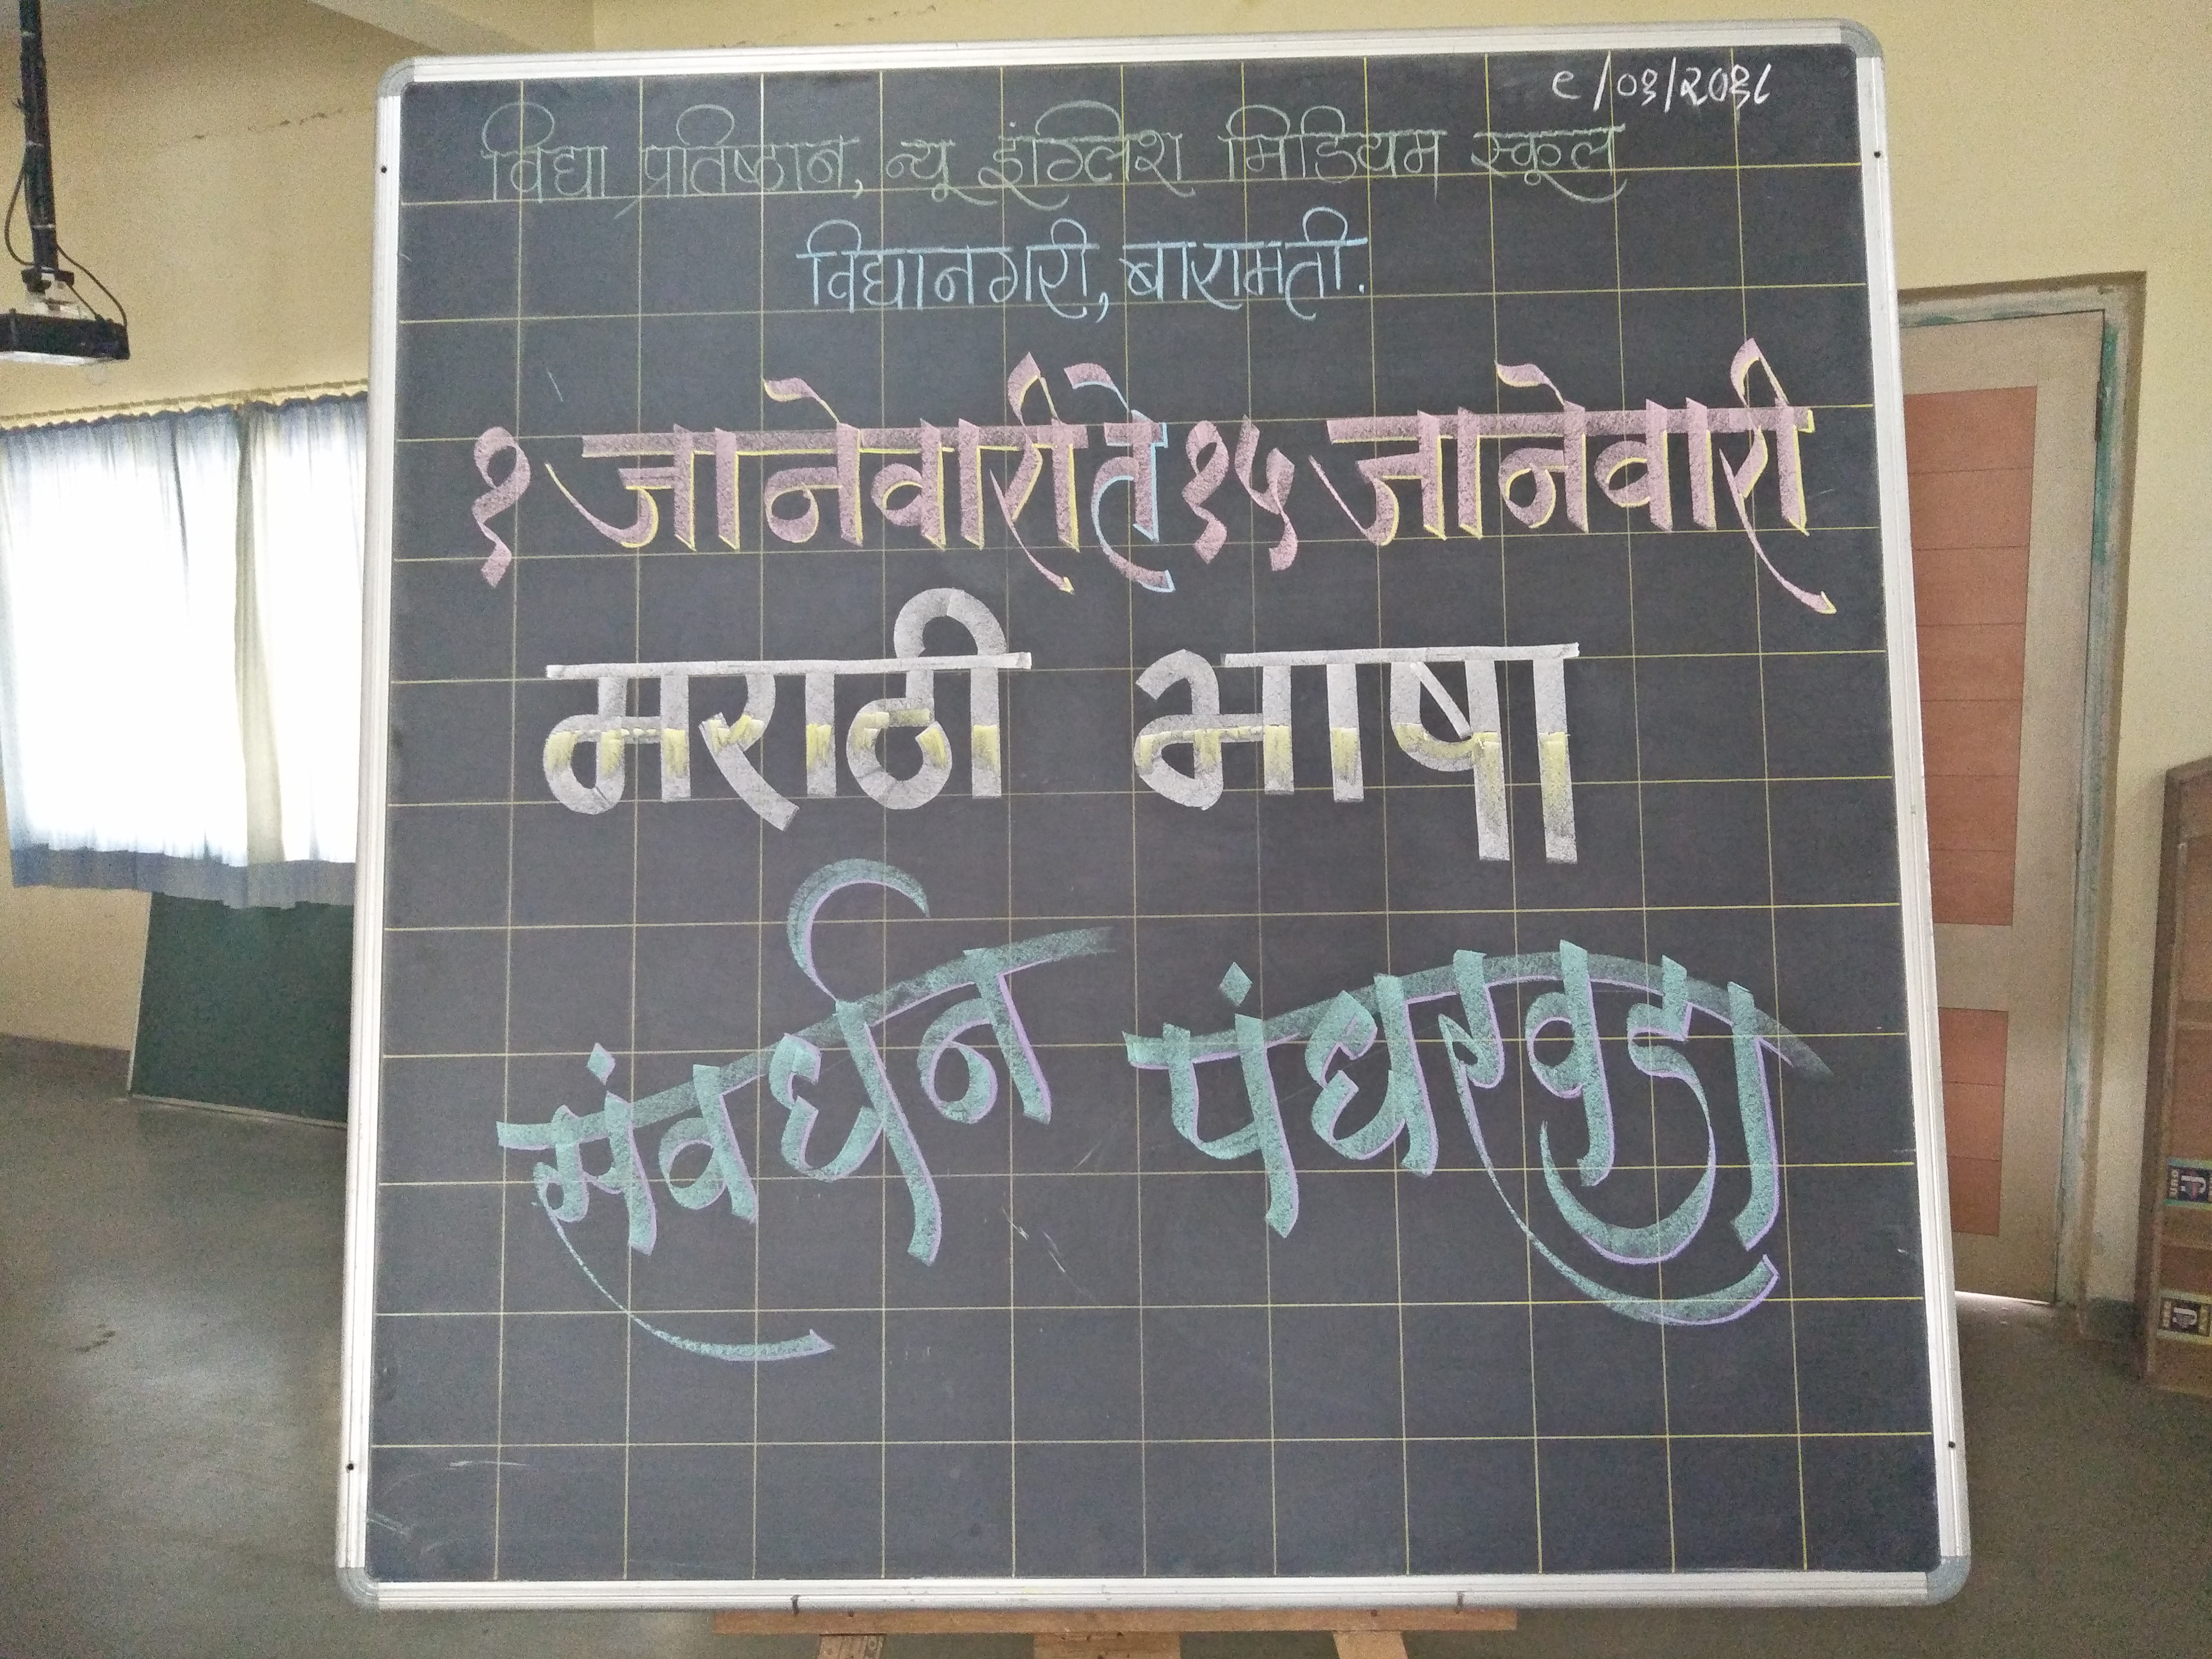 ९/०१/२०१८
विद्या प्रतिष्ठान, न्यू इंग्लिश मिडियम स्कूल
विद्यानगरी, बारामती.
१ जानेवारी ते १५ जानेवारी
मराठी भाषा
संवर्धन पंधरवडा